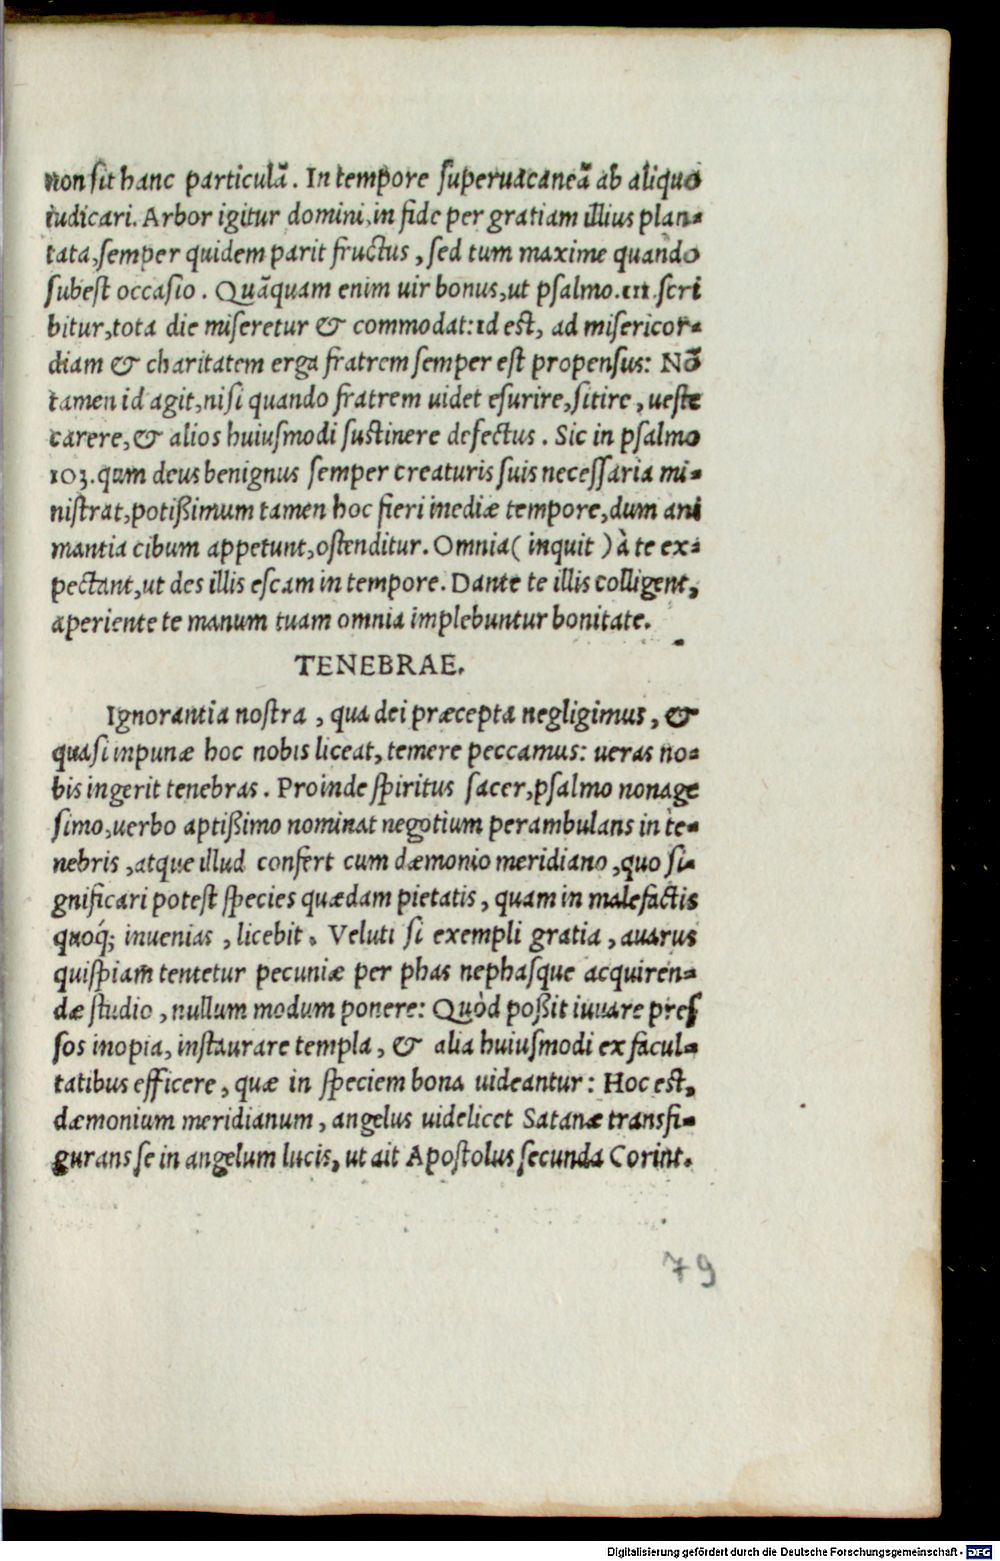 non sit hanc particulã. In tempore superuacaneã ab aliquo
iudicari. Arbor igitur domini, in fide per gratiam illius plan-
tata, semper quidem parit fructus, sed tum maxime quando
subest occasio. Quãquam enim uir bonus, ut psalmo.111.scri
bitur, tota die miseretur & commodat: id est, ad misericor-
diam & charitatem erga fratrem semper est propensus: Nõ
tamen id agit, nisi quando fratrem uidet esurire, sitire, ueste
carere, & alios huiusmodi sustinere defectus. Sic in psalmo
103. qum deus benignus semper creaturis suis necessaria mi-
nistrat, potißimum tamen hoc fieri inediæ tempore, dum ani
mantia cibum appetunt, ostenditur. Omnia ( inquit ) à te ex-
pectant, ut des illis escam in tempore. Dante te illis colligent,
aperiente te manum tuam omnia implebuntur bonitate.
TENEBRAE.
Ignorantia nostra, qua dei præcepta negligimus, &
quasi inpunæ hoc nobis liceat, temere peccamus: ueras no-
bis ingerit tenebras. Proinde spiritus sacer, psalmo nonage
simo, uerbo aptißimo nominat negotium perambulans in te-
nebris, atque illud confert cum dæmonio meridiano, quo si-
gnificari potest species quædam pietatis, quam in malefactis
quoq́; inuenias, licebit. Veluti si exempli gratia, auarus
quispiam tentetur pecuniæ per phas nephasque acquiren-
dæ studio, nullum modum ponere: Quòd poßit iuuare pres
sos inopia, instaurare templa, & alia huiusmodi ex facul-
tatibus efficere, quæ in speciem bona uideantur: Hoc est,
dæmonium meridianum, angelus uidelicet Satanæ transfi-
gurans se in angelum lucis, ut ait Apostolus secunda Corint.
79
Digitalisierung gefördert durch die Deutsche Forschungsgemeinschaft - DFG